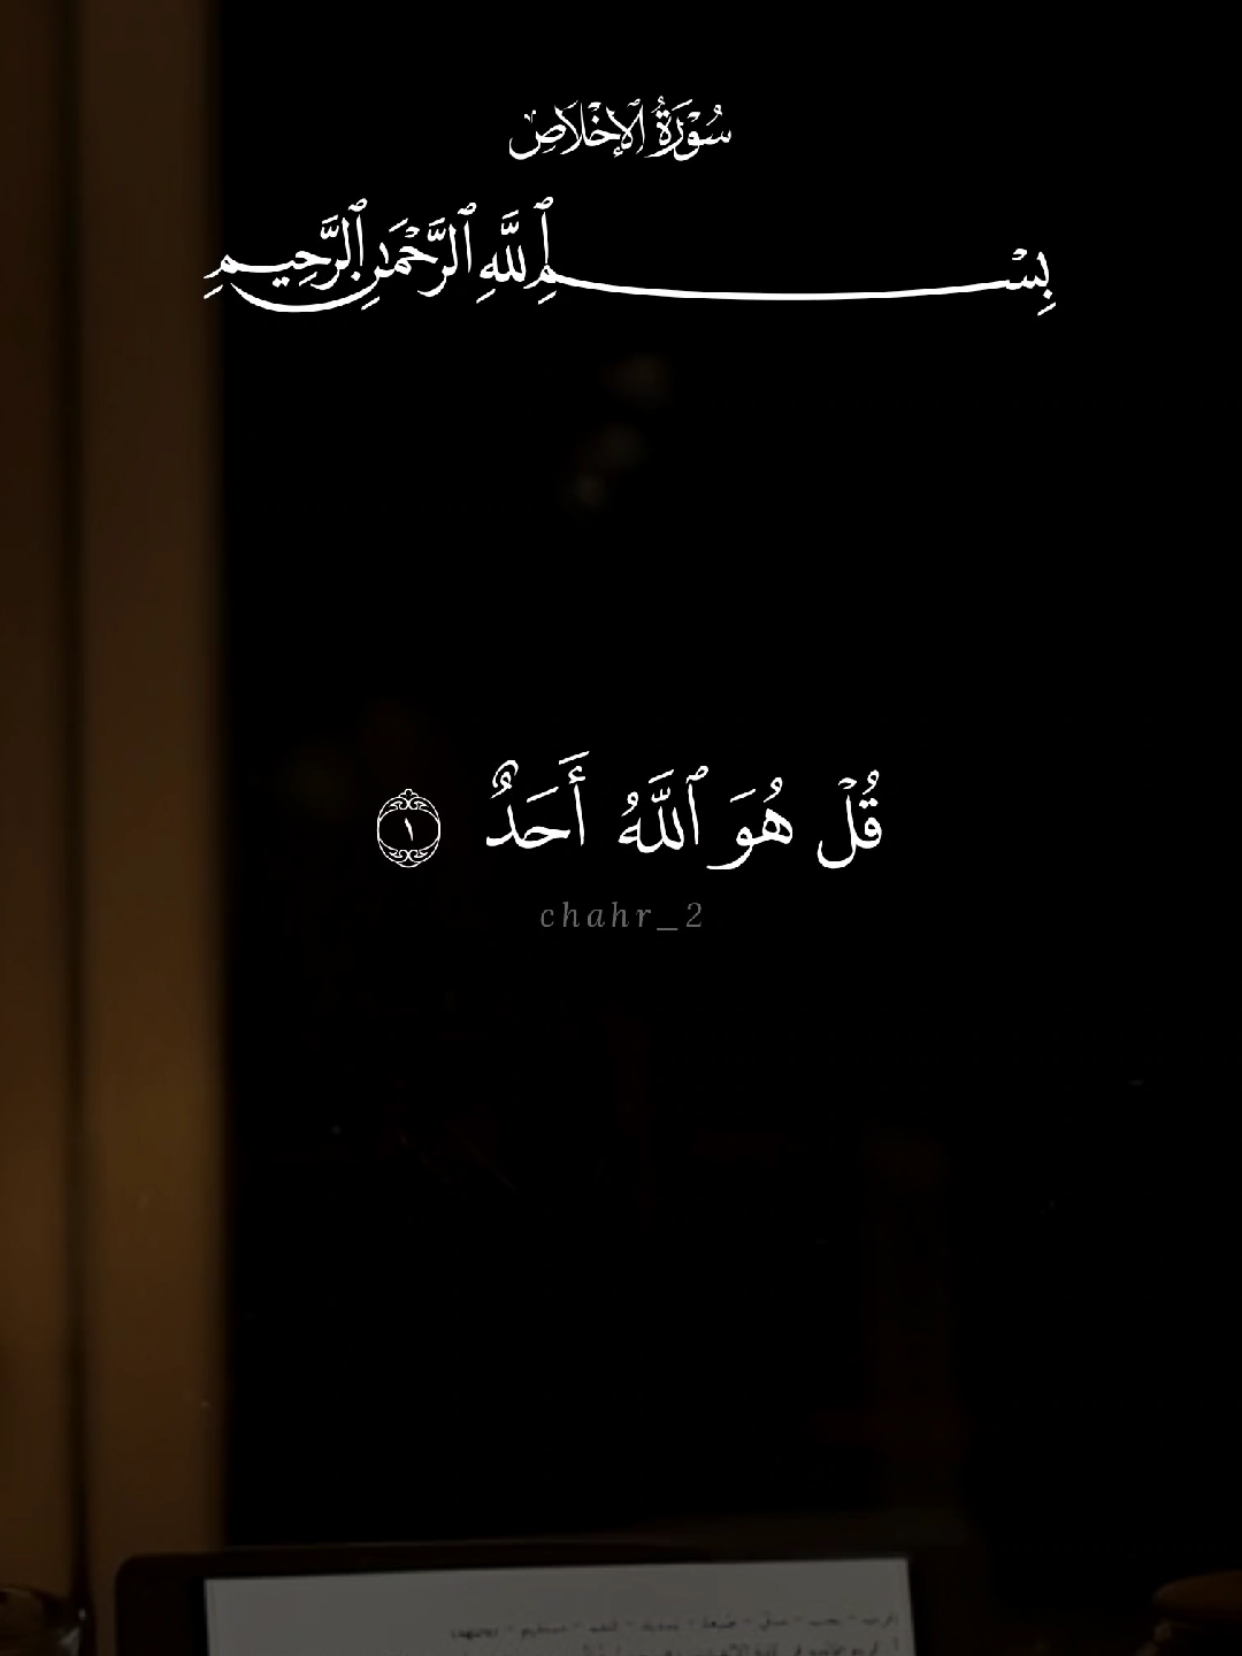 سُورَةُ ٱلْإِخْلَاصِ
بِسْمِ ٱللَّهِ ٱلرَّحْمَٰنِ ٱلرَّحِيمِ
قُلْ هُوَ ٱللَّهُ أَحَدٌ ١
chahr_2